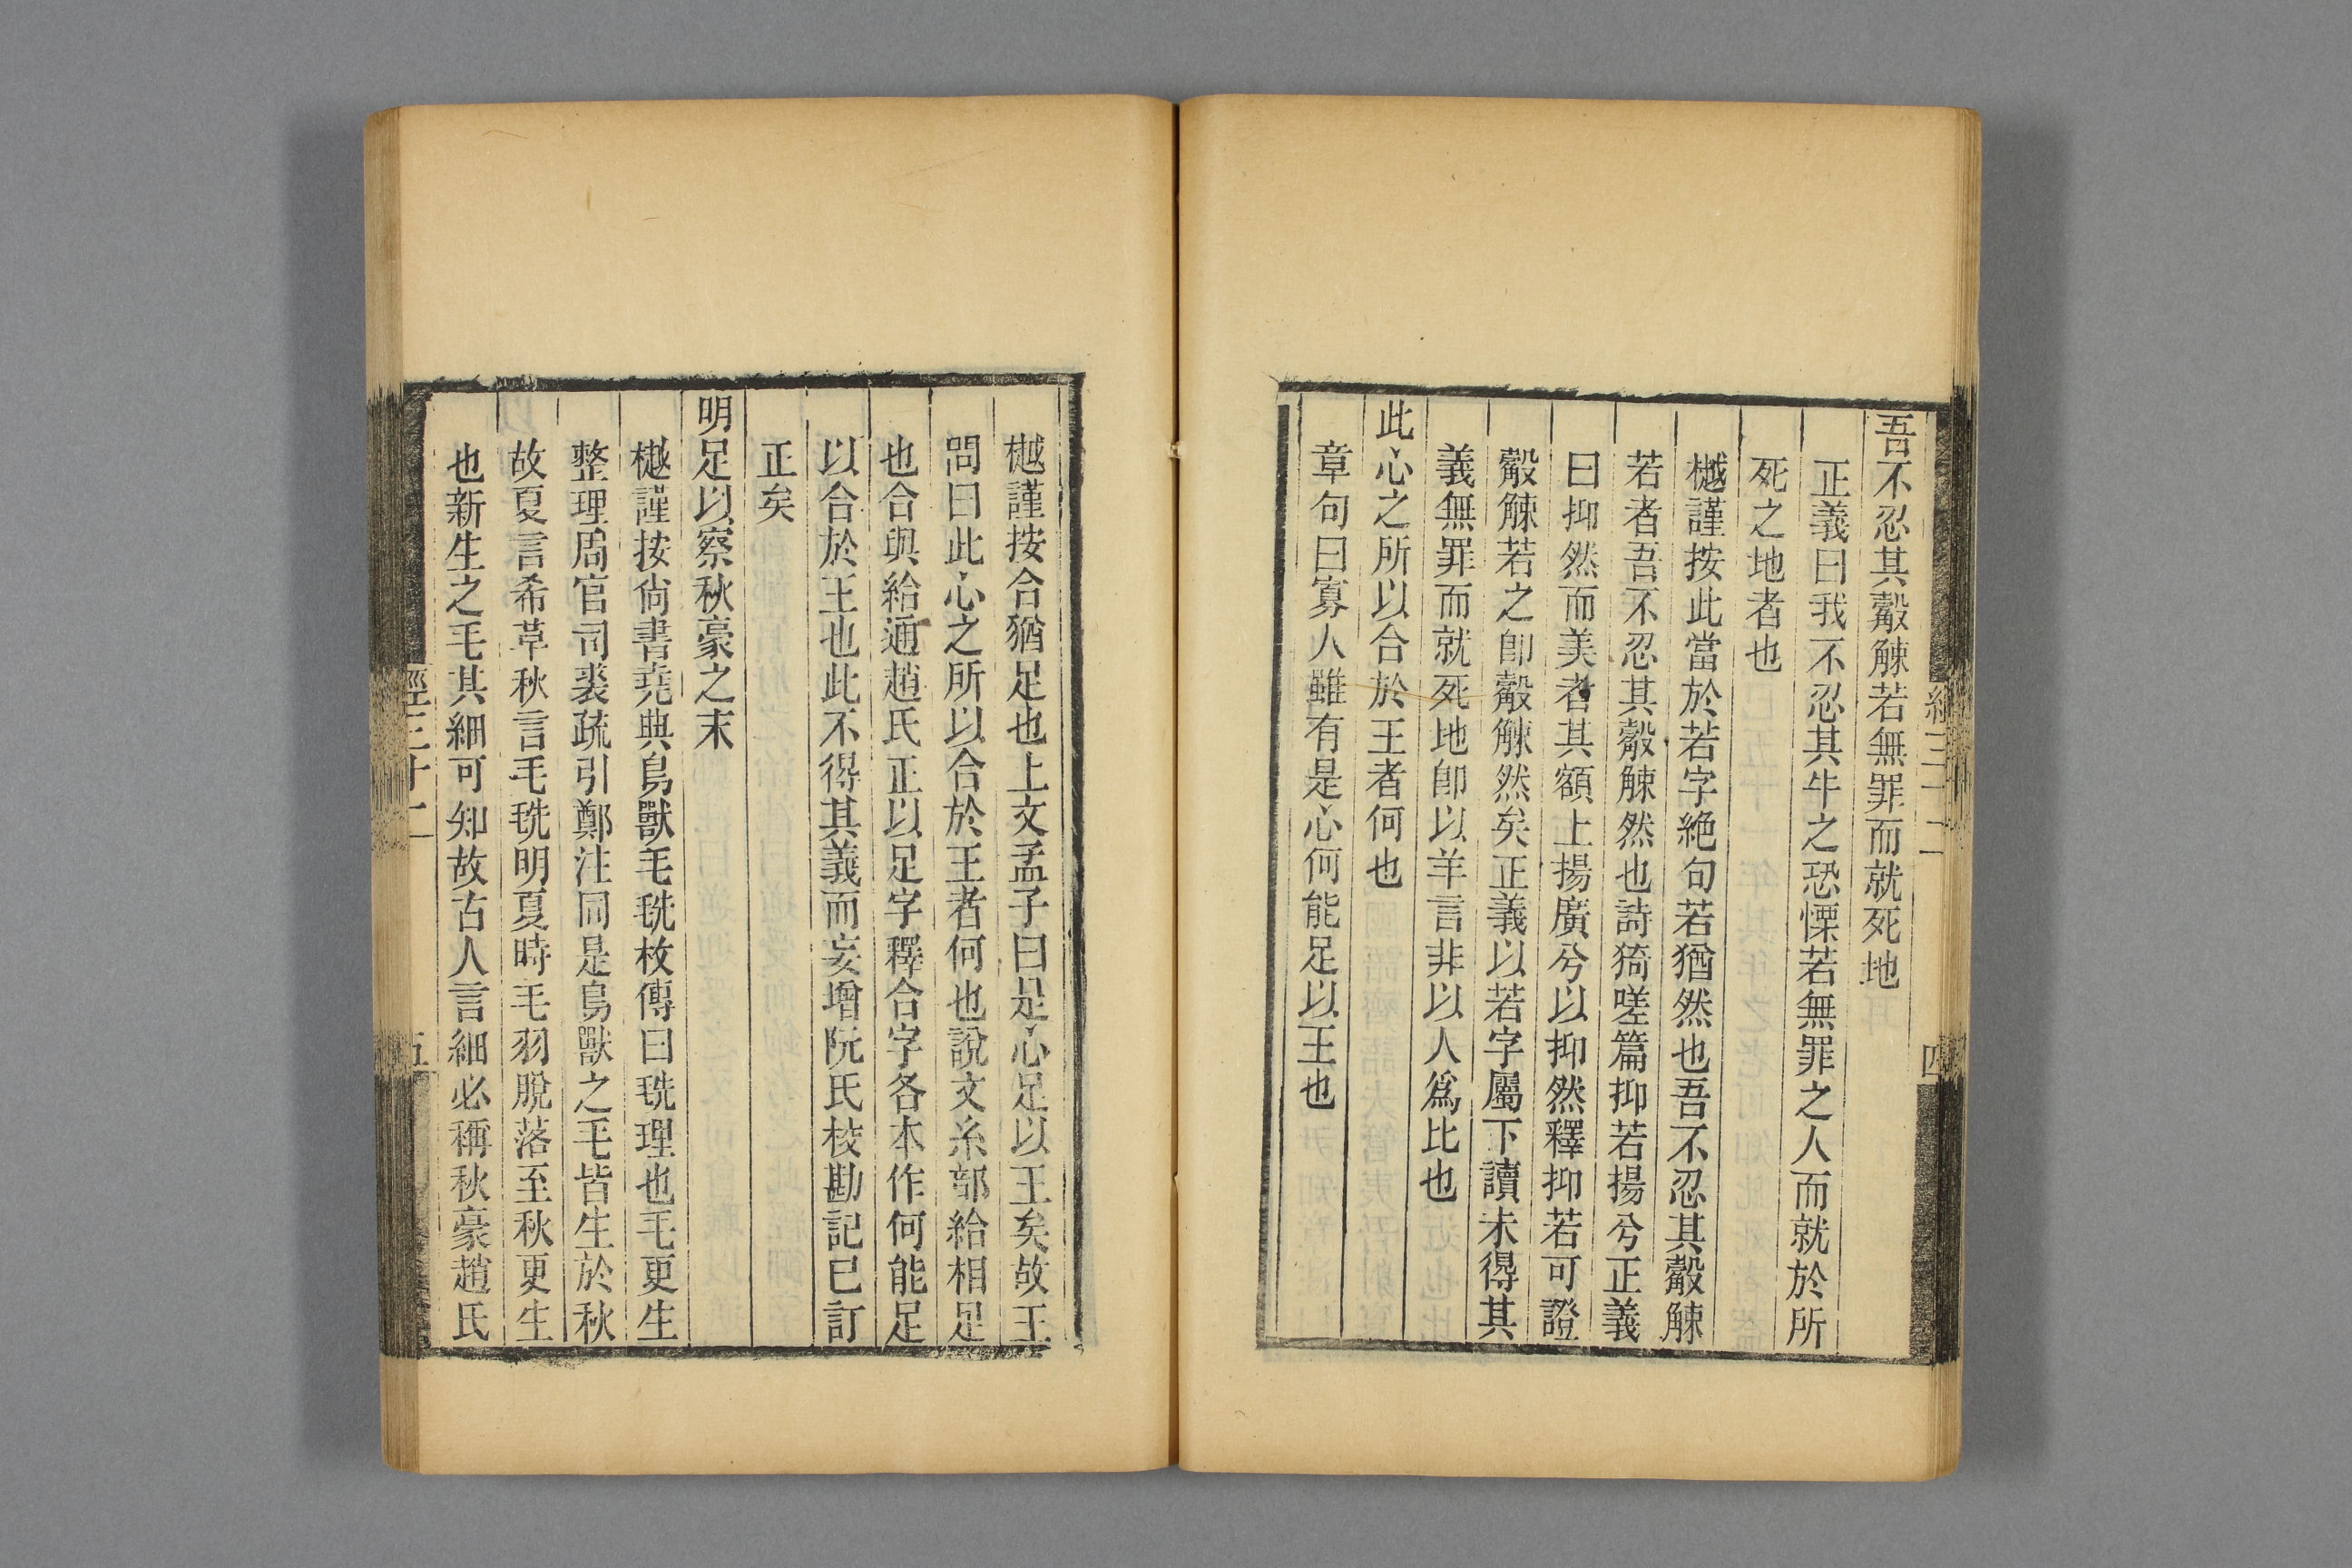 吾不忍其觳觫若無罪而就死地
正義曰我不忍其牛之恐慄若無罪之人而就於所
死之地者也
樾謹按此當於若字絶句若猶然也吾不忍其觳觫
若者吾不忍其觳觫然也詩猗嗟篇抑若揚兮正義
曰抑然而美者其額上揚廣兮以抑然釋抑若可證
觳觫若之卽觳觫然矣正義以若字屬下讀未得其
義無罪而就死地卽以羊言非以人爲比也
此心之所以合於王者何也
章句曰寡人雖有是心何能足以王也
四
樾謹按合猶足也上文孟子曰是心足以王矣故王
問曰此心之所以合於王者何也說文糸部給相足
也合與給通趙氏正以足字釋合字各本作何能足
以合於王也此不得其義而妄增阮氏校勘記已訂
正矣
明足以察秋豪之末
樾謹按尙書堯典鳥獸毛毨枚傳曰毨理也毛更生
整理周官司裘疏引鄭注同是鳥獸之毛皆生於秋
故夏言希革秋言毛毨明夏時毛羽脫落至秋更生
也新生之毛其細可知故古人言細必稱秋豪趙氏
經三十二
五